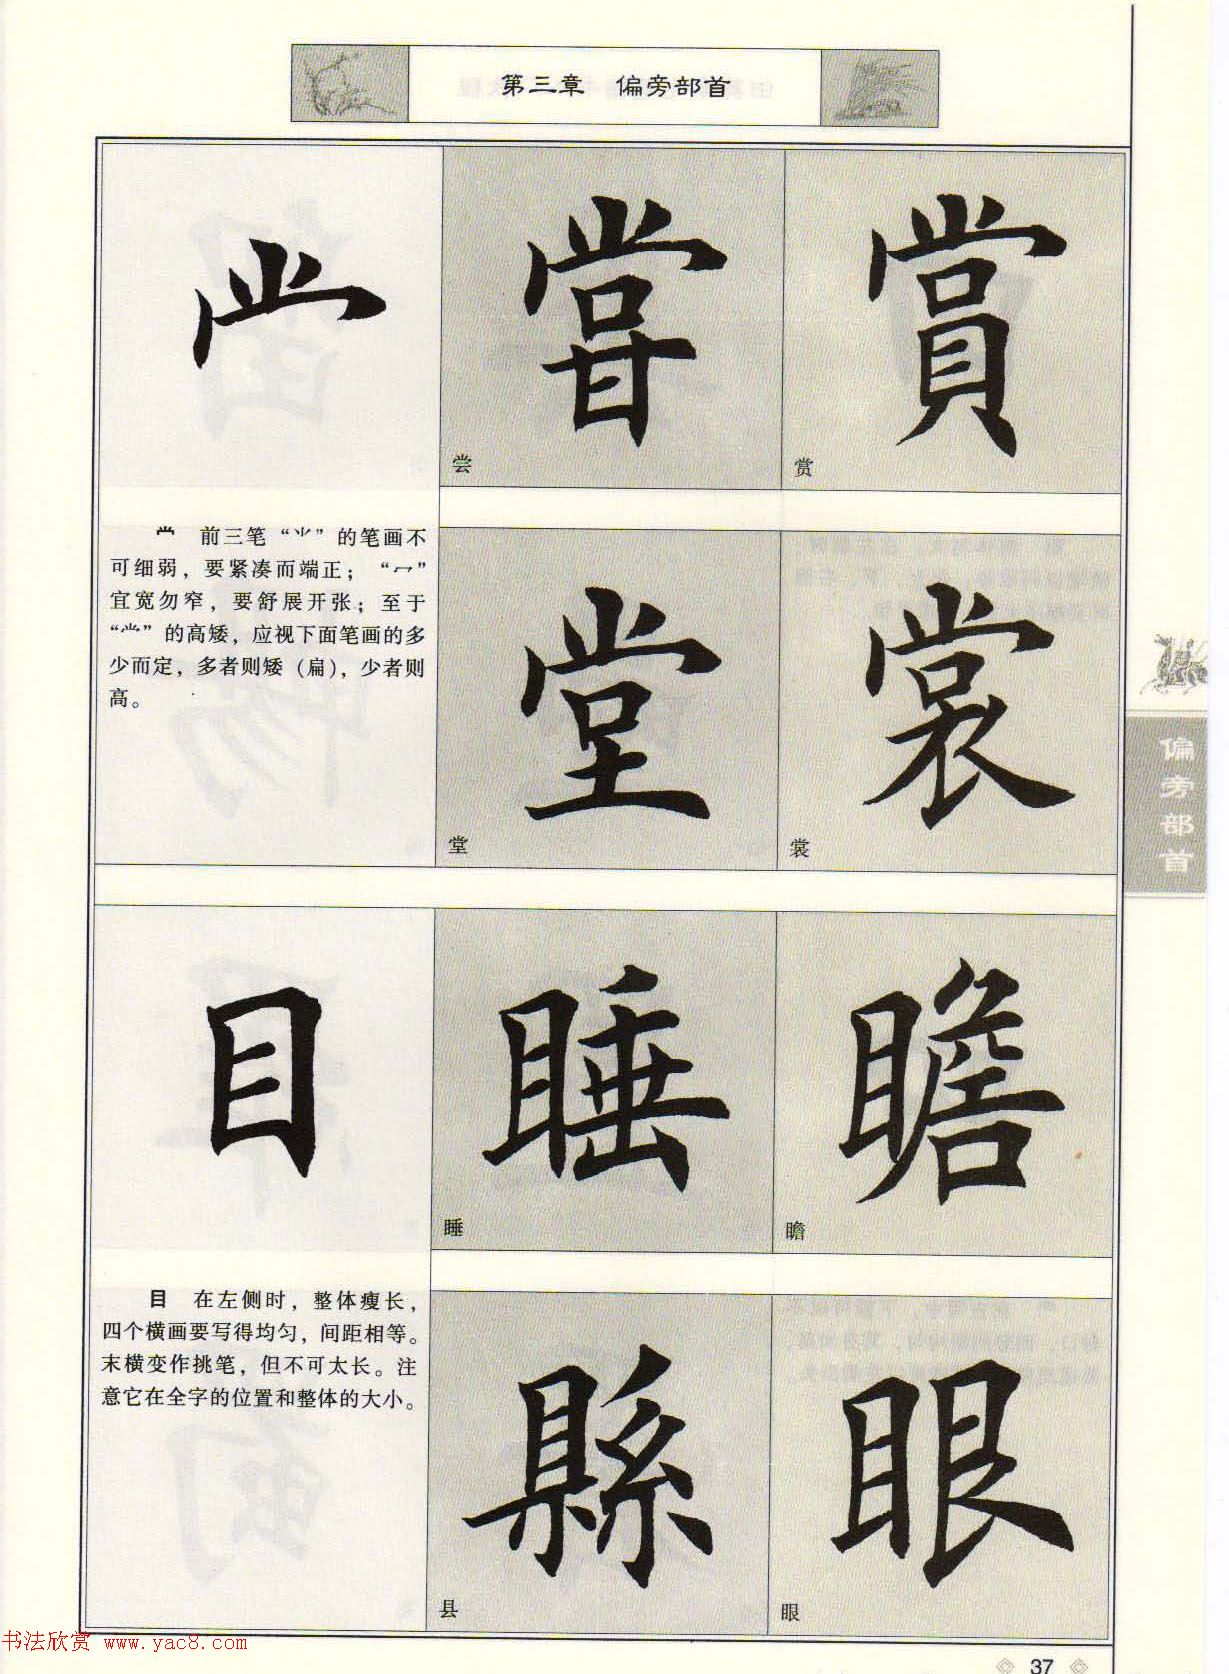 第三章 偏旁部首
龸
嘗
賞
尝
赏
龸 前三笔“⺌”的笔画不
可细弱，要紧凑而端正；“冖”
宜宽勿窄，要舒展开张；至于
“龸”的高矮，应视下面笔画的多
少而定，多者则矮（扁），少者则
高。
堂
裳
堂
裳
偏旁部首
目
睡
瞻
睡
瞻
目 在左侧时，整体瘦长，
四个横画要写得均匀，间距相等。
末横变作挑笔，但不可太长。注
意它在全字的位置和整体的大小。
縣
眼
县
眼
书法欣赏 www.yac8.com
37